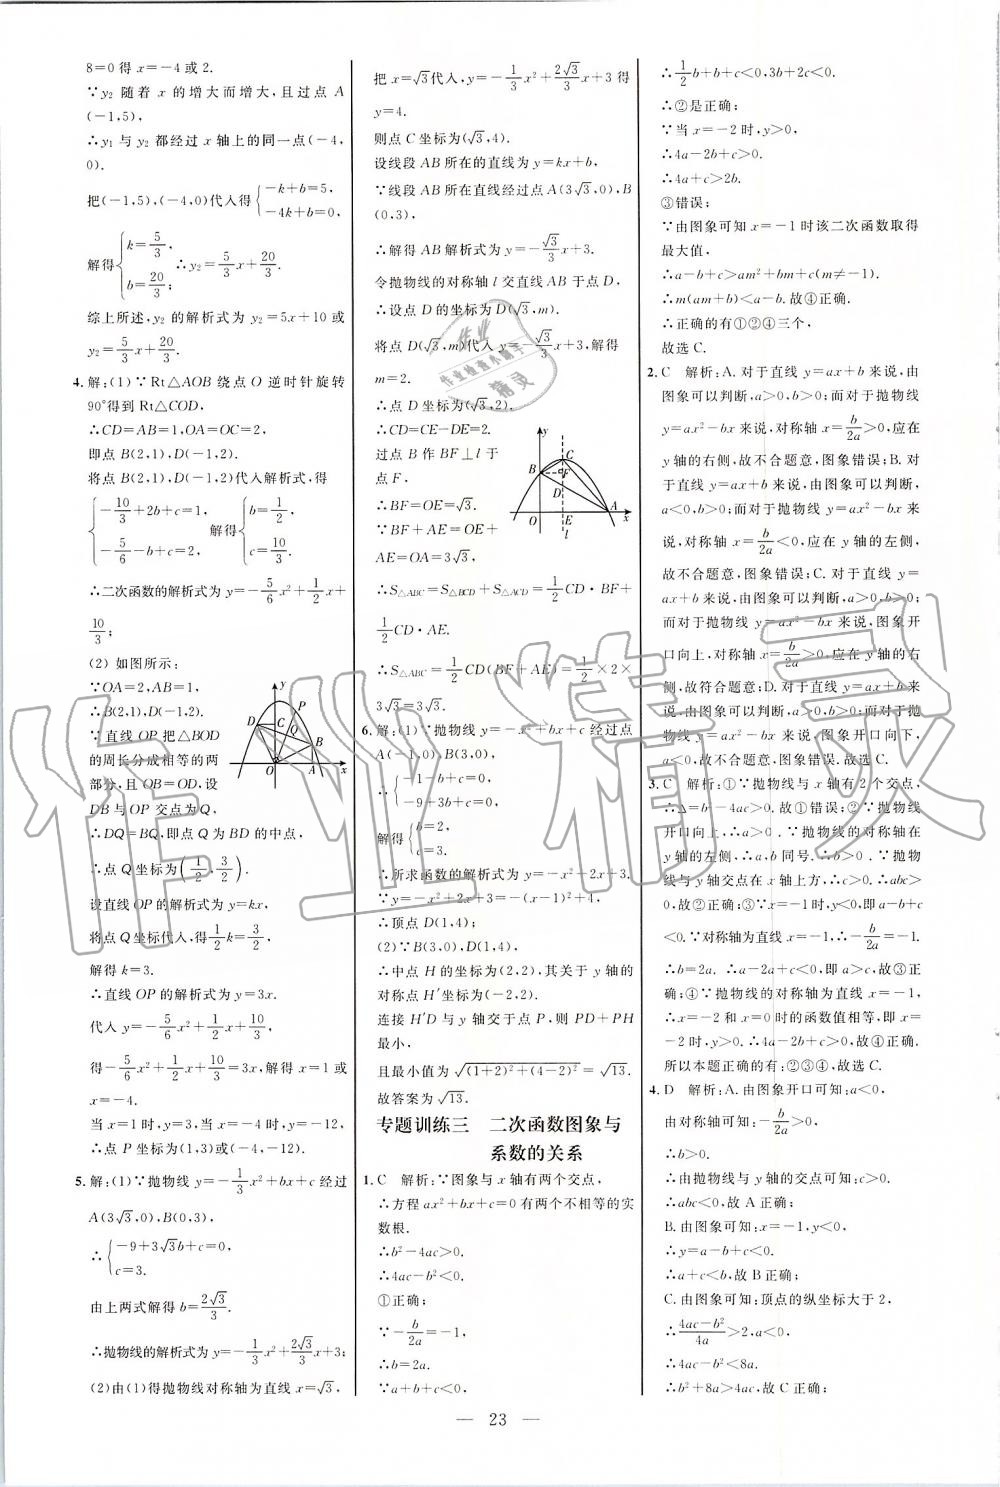 8=0得 x=-4或2.
∵y₂ 随着 x 的增大而增大,且过点 A
(-1,5),
∴y₁ 与 y₂ 都经过 x 轴上的同一点(-4,
0).
把(-1,5),(-4,0)代入得{-k+b=5,
-4k+b=0,
解得{k=5/3,
b=20/3; ∴y₂=5/3x+20/3.
综上所述,y₂ 的解析式为 y₂=5x+10 或
y₂=5/3x+20/3.
4. 解:(1)∵Rt△AOB 绕点 O 逆时针旋转
90°得到 Rt△COD,
∴CD=AB=1,OA=OC=2,
即点 B(2,1),D(-1,2).
将点 B(2,1),D(-1,2)代入解析式,得
{-10/3+2b+c=1,
-5/6-b+c=2, 解得{b=1/2,
c=10/3.
∴二次函数的解析式为 y=-5/6x²+1/2x+
10/3;
(2) 如图所示:
∵OA=2,AB=1,
∴B(2,1),D(-1,2).
∵直线 OP 把△BOD
的周长分成相等的两
部分,且 OB=OD,设
DB 与 OP 交点为 Q,
∴DQ=BQ,即点 Q 为 BD 的中点,
∴点 Q 坐标为(1/2,3/2).
设直线 OP 的解析式为 y=kx,
将点 Q 坐标代入,得1/2k=3/2,
解得 k=3.
∴直线 OP 的解析式为 y=3x.
代入 y=-5/6x²+1/2x+10/3,
得-5/6x²+1/2x+10/3=3x,解得 x=1 或
x=-4.
当 x=1 时,y=3,当 x=-4 时,y=-12,
∴点 P 坐标为(1,3)或(-4,-12).
5. 解:(1)∵抛物线 y=-1/3x²+bx+c 经过
A(3√3,0),B(0,3),
∴{-9+3√3b+c=0,
c=3.
由上两式解得 b=2√3/3.
∴抛物线的解析式为 y=-1/3x²+2√3/3x+3;
(2)由(1)得抛物线对称轴为直线 x=√3,
y
D C P
Q B
O A x
把 x=√3代入,y=-1/3x²+2√3/3x+3 得
y=4.
则点 C 坐标为(√3,4).
设线段 AB 所在的直线为 y=kx+b,
∵线段 AB 所在直线经过点 A(3√3,0),B
(0,3),
∴解得 AB 解析式为 y=-√3/3x+3.
令抛物线的对称轴 l 交直线 AB 于点 D,
∴设点 D 的坐标为(√3,m).
将点 D(√3,m)代入 y=-√3/3x+3,解得
m=2.
∴点 D 坐标为(√3,2).
∴CD=CE-DE=2.
过点 B 作 BF⊥l 于
点 F,
∴BF=OE=√3.
∵BF+AE=OE+
AE=OA=3√3,
∴S△ABC=S△BCD+S△ACD=1/2CD·BF+
1/2CD·AE.
∴S△ABC=1/2CD(BF+AE)=1/2×2×
3√3=3√3.
y C
B F
D
O E A x
l
6. 解:(1)∵抛物线 y=-x²+bx+c 经过点
A(-1,0),B(3,0).
∴{-1-b+c=0,
-9+3b+c=0,
解得{b=2,
c=3.
∴所求函数的解析式为 y=-x²+2x+3.
∵y=-x²+2x+3=-(x-1)²+4,
∴顶点 D(1,4);
(2)∵B(3,0),D(1,4),
∴中点 H 的坐标为(2,2),其关于 y 轴的
对称点 H′坐标为(-2,2).
连接 H′D 与 y 轴交于点 P,则 PD+PH
最小,
且最小值为√(1+2)²+(4-2)²=√13.
故答案为√13.
专题训练三 二次函数图象与
系数的关系
1. C 解析:∵图象与 x 轴有两个交点,
∴方程 ax²+bx+c=0 有两个不相等的实
数根.
∴b²-4ac>0.
∴4ac-b²<0.
①正确;
∵-b/2a=-1,
∴b=2a.
∵a+b+c<0,
∴1/2b+b+c<0,3b+2c<0.
∴②是正确;
∵当 x=-2 时,y>0,
∴4a-2b+c>0.
∴4a+c>2b.
③错误;
∵由图象可知 x=-1 时该二次函数取得
最大值,
∴a-b+c>am²+bm+c(m≠-1).
∴m(am+b)<a-b.故④正确.
∴正确的有①②④三个,
故选 C.
2. C 解析:A. 对于直线 y=ax+b 来说,由
图象可以判断,a>0,b>0;而对于抛物线
y=ax²-bx 来说,对称轴 x=b/2a>0,应在
y 轴的右侧,故不合题意,图象错误;B. 对
于直线 y=ax+b 来说,由图象可以判断,
a<0,b>0;而对于抛物线 y=ax²-bx 来
说,对称轴 x=b/2a<0,应在 y 轴的左侧,
故不合题意,图象错误;C. 对于直线 y=
ax+b 来说,由图象可以判断,a>0,b>0;
而对于抛物线 y=ax²-bx 来说,图象开
口向上,对称轴 x=b/2a>0,应在 y 轴的右
侧,故符合题意;D. 对于直线 y=ax+b 来
说,由图象可以判断,a>0,b>0;而对于
抛物线 y=ax²-bx 来说,图象开口向下,
a<0,故不合题意,图象错误;故选 C.
3. C 解析:①∵抛物线与 x 轴有 2 个交点,
∴Δ=b²-4ac>0.故①错误;②∵抛物线
开口向上,∴a>0.∵抛物线的对称轴在
y 轴的左侧,∴a,b 同号.∴b>0.∵抛物
线与 y 轴交点在 x 轴上方,∴c>0.∴abc>
0.故②正确;③∵x=-1 时,y<0,即 a-b+c
<0.∵对称轴为直线 x=-1,∴-b/2a=-1.
∴b=2a. ∴a-2a+c<0,即 a>c.故③正
确;④∵抛物线的对称轴为直线 x=-1,
∴x=-2 和 x=0 时的函数值相等,即 x=
-2 时,y>0.∴4a-2b+c>0.故④正确.
所以本题正确的有:②③④,故选 C.
4. D 解析:A. 由图象开口可知:a<0,
由对称轴可知:-b/2a>0,
∴b>0.
∴由抛物线与 y 轴的交点可知:c>0,
∴abc<0,故 A 正确;
B. 由图象可知:x=-1,y<0,
∴y=a-b+c<0.
∴a+c<b,故 B 正确;
C. 由图象可知:顶点的纵坐标大于 2,
∴(4ac-b²)/4a>2,a<0.
∴4ac-b²<8a.
∴b²+8a>4ac,故 C 正确;
— 23 —
作业精灵
作业检查小能手